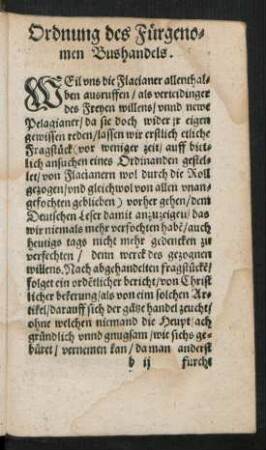 Ordnung des Fürgeno-
men Bushandels.
WEil vns die Flacianer allenthal-
ben ausruffen/ als verteidinger
des Freyen willens/ vnnd newe
Pelagianer/ da sie doch wider jr eigen
gewissen reden/ lassen wir erstlich etliche
Fragstück (vor weniger zeit/ auff bit-
lich ansuchen eines Ordinanden gestel-
let/ von Flacianern wol durch die Roll
gezogen/ vnd gleichwol von allen vnan-
gefochten geblieben) vorher gehen/ dem
Deutschen Leser damit anzuzeigen/ das
wir niemals mehr verfochten habē/ auch
heutigs tags nicht mehr gedencken zu
verfechten/ denn werck des gezognen
willens. Nach abgehandelten fragstückē/
folget ein ordētlicher bericht/ von Christ
licher bekerung/ als von eim solchen Ar-
tikel/ darauff sich der gātze handel zeucht/
ohne welchen niemand die Heuptsach
gründlich vnnd gnugsam/ wie sichs ge-
büret/ vernemen kan/ da man anderst
b ij furcht